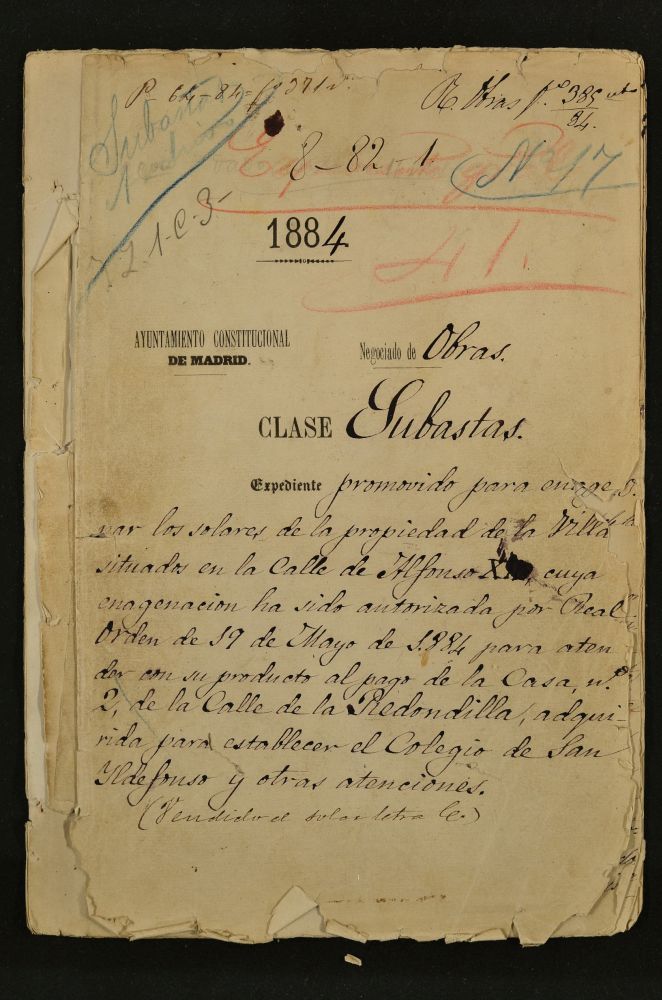 P. 64-84=
R. Obras 385
84.
Subasta
8-82-1
Nº 17
1-C-3-
1884
41.
AYUNTAMIENTO CONSTITUCIONAL
DE MADRID.
Negociado de Obras.
CLASE Subastas.
Expediente promovido para enage
nar los solares de la propiedad de la Villa
situados en la Calle de Alfonso cuya
enagenacion ha sido autorizada por Real
Orden de 19 de Mayo de 1.884 para aten
der con su producto al pago de la Casa, nº
2, de la Calle de la Redondilla, adqui-
rida para establecer el Colegio de San
Ildefonso y otras atenciones.
(Vendido el solar letra C.)